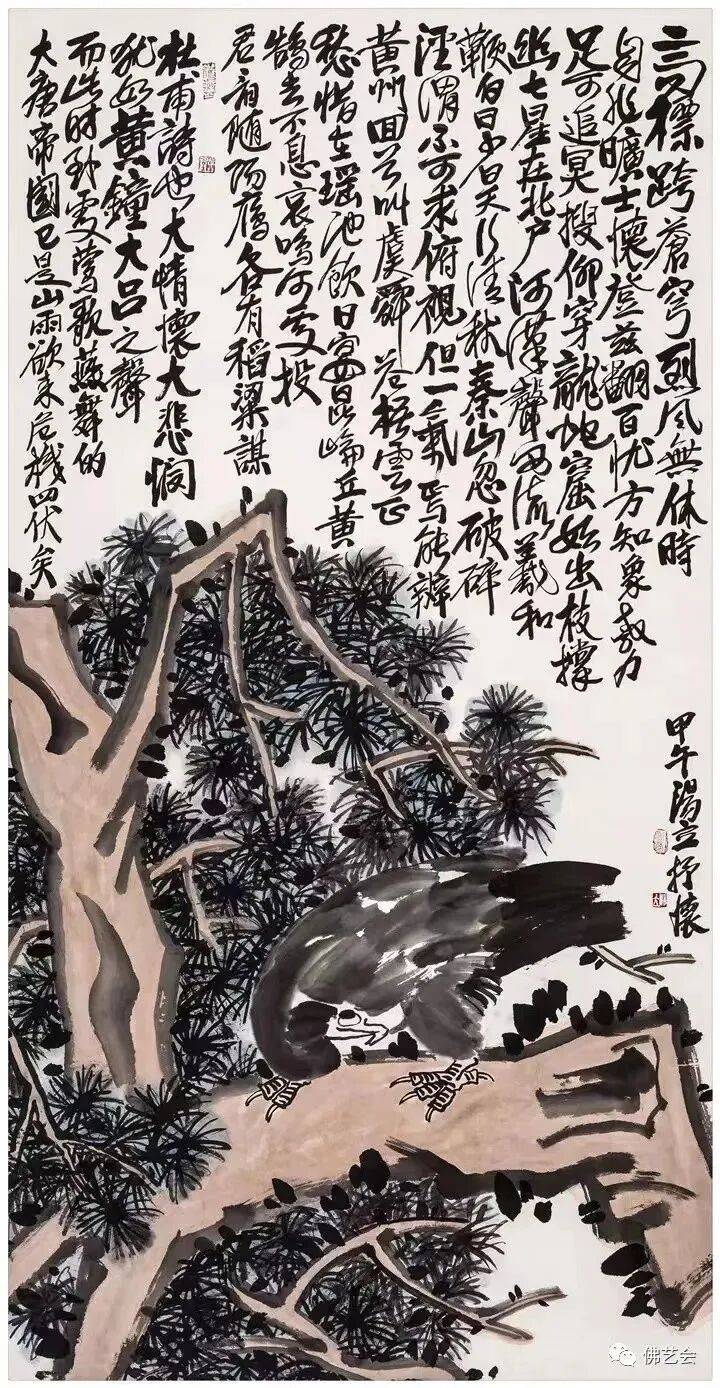 高標跨蒼穹烈风無休時
自非曠士懷登兹翻百忧方知象教力
足可追冥搜仰穿龍蛇窟始出枝撐
幽七星在北户河漢聲西流羲和
鞭白日少昊行清秋秦山忽破碎
涇渭不可求俯視但一氣焉能辨
黄州回首叫虞舜苍梧雲正
愁惜在瑶池飲日宴昆崙丘黄
鵠去不息哀鳴何處投
君看随陽雁各有稻粱謀
杜甫詩也大情懷大悲悯
犹如黄鐘大吕之聲
而此时到處莺歌燕舞的
大唐帝國已是山雨欲来危機四伏矣
甲午湯立抒懷
佛艺会